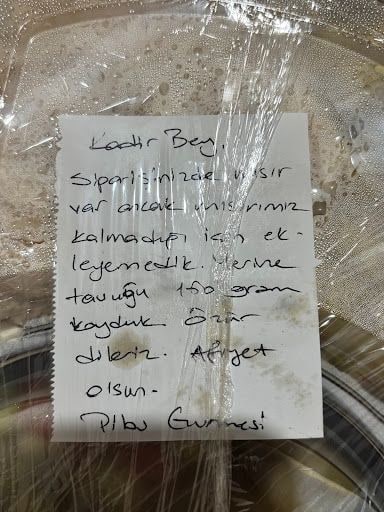 Kadir Bey,
Siparişinizde mısır
var ancak mısırımız
kalmadığı için ek-
leyemedik. Yerine
tavuğu 160 gram
koyduk Özür
dileriz. Afiyet
olsun.
Pilav Gurmesi